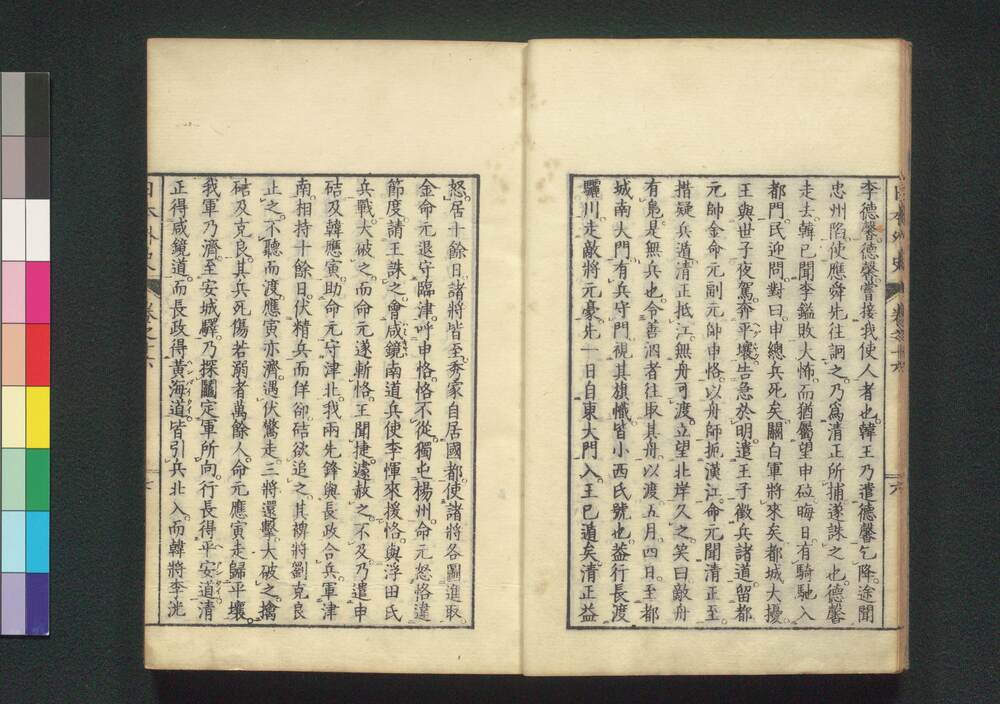 李德馨德馨嘗接我使人者也韓王乃遣德馨乞降途聞
忠州陷使應舜先往詗之乃爲清正所捕遂誅之也德馨
走去韓已聞李鎰敗大怖而猶屬望申砬晦日有騎馳入
都門民迎問對曰申總兵死矣關白軍將來矣都城大擾
王與世子夜駕奔平壤告急於明遣王子徵兵諸道留都
元帥金命元副元帥申恪以舟師扼漢江命元聞清正至
措疑兵遁清正抵江無舟可渡立望北岸久之笑曰敵舟
有鳧是無兵也令善泅者往取其舟以渡五月四日至都
城南大門有兵守門視其旗幟皆小西氏號也蓋行長渡
驪川走敵將元豪先一日自東大門入王已遁矣清正益
怒居十餘日諸將皆至秀家自居國都使諸將各圖進取
金命元退守臨津呼申恪恪不從獨屯楊州命元怒恪違
節度請王誅之會咸鏡南道兵使李惲來援恪與浮田氏
兵戰大破之而命元遂斬恪王聞捷遽赦之不及乃遣申
硈及韓應寅助命元守津北我兩先鋒與長政合兵軍津
南相持十餘日伏精兵而佯卻硈欲追之其裨將劉克良
止之不聽而渡應寅亦濟遇伏驚走三將還擊大破之擒
硈及克良其兵死傷若溺者萬餘人命元應寅走歸平壤
我軍乃濟至安城驛乃探鬮定軍所向行長得平安道清
正得咸鏡道而長政得黃海道皆引兵北入而韓將李洸